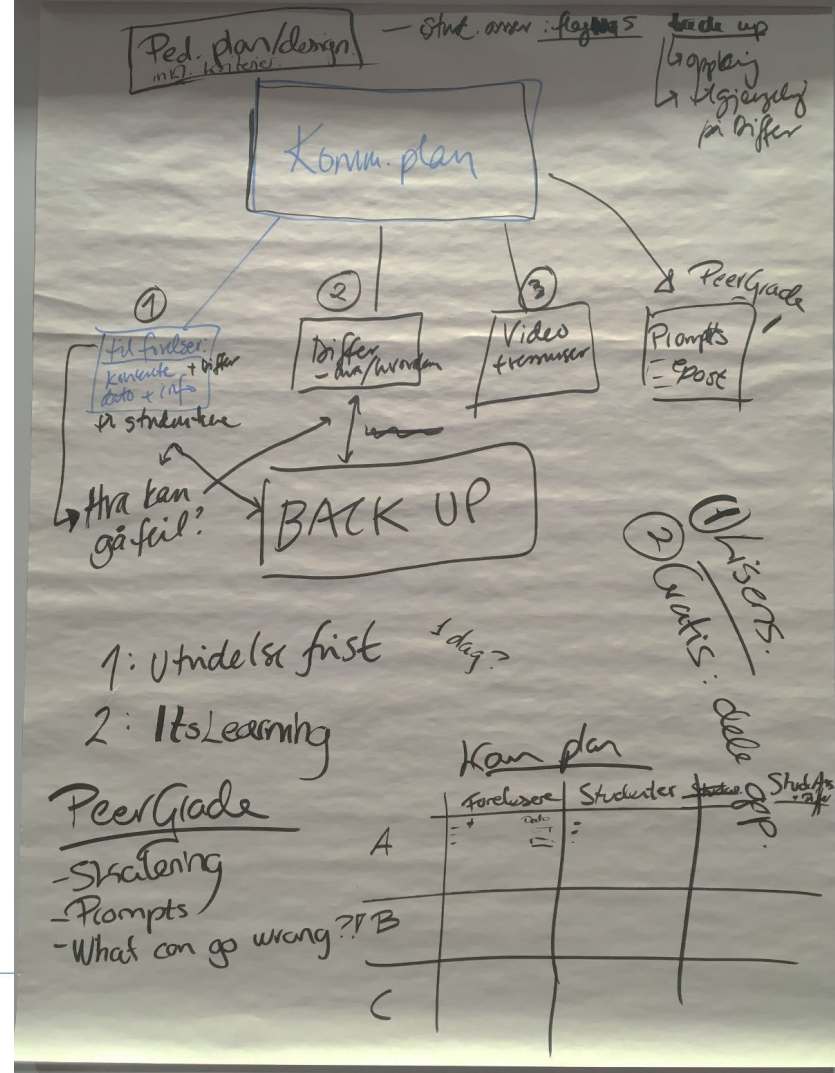 Ped. plan/design
inkl. kriterier
— Stud. anser :
back up
↳ opplæring
↳ tilgjengelig
på Differ
Komm. plan
①
til forelser:
konkrete + Differ
dato + info
②
Differ
- hva/hvordan
③
Video
PeerGrade
Prompts
epost
Hva kan
gå feil?
BACK UP
① Lisens.
② Gratis: dele opp.
1: Utvidelse frist 1 dag?
2: ItsLearning
PeerGrade
- Skalering
- Prompts
- What can go wrong?!
Kom plan
Forelesere Studenter
A
Dato
B
C